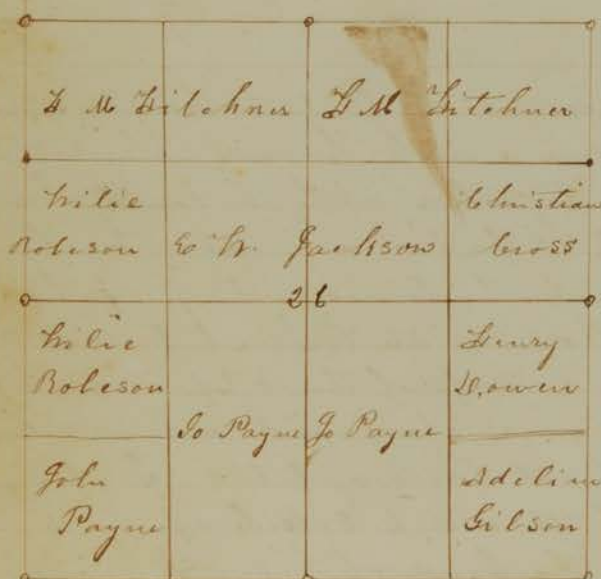 H M Kitchner H M Kitchner
Wilie
Robeson
E W Jackson
Christian
Cross
26
Wilie
Robeson
Henry
Bowen
Jo Payne Jo Payne
John
Payne
Adeline
Gibson